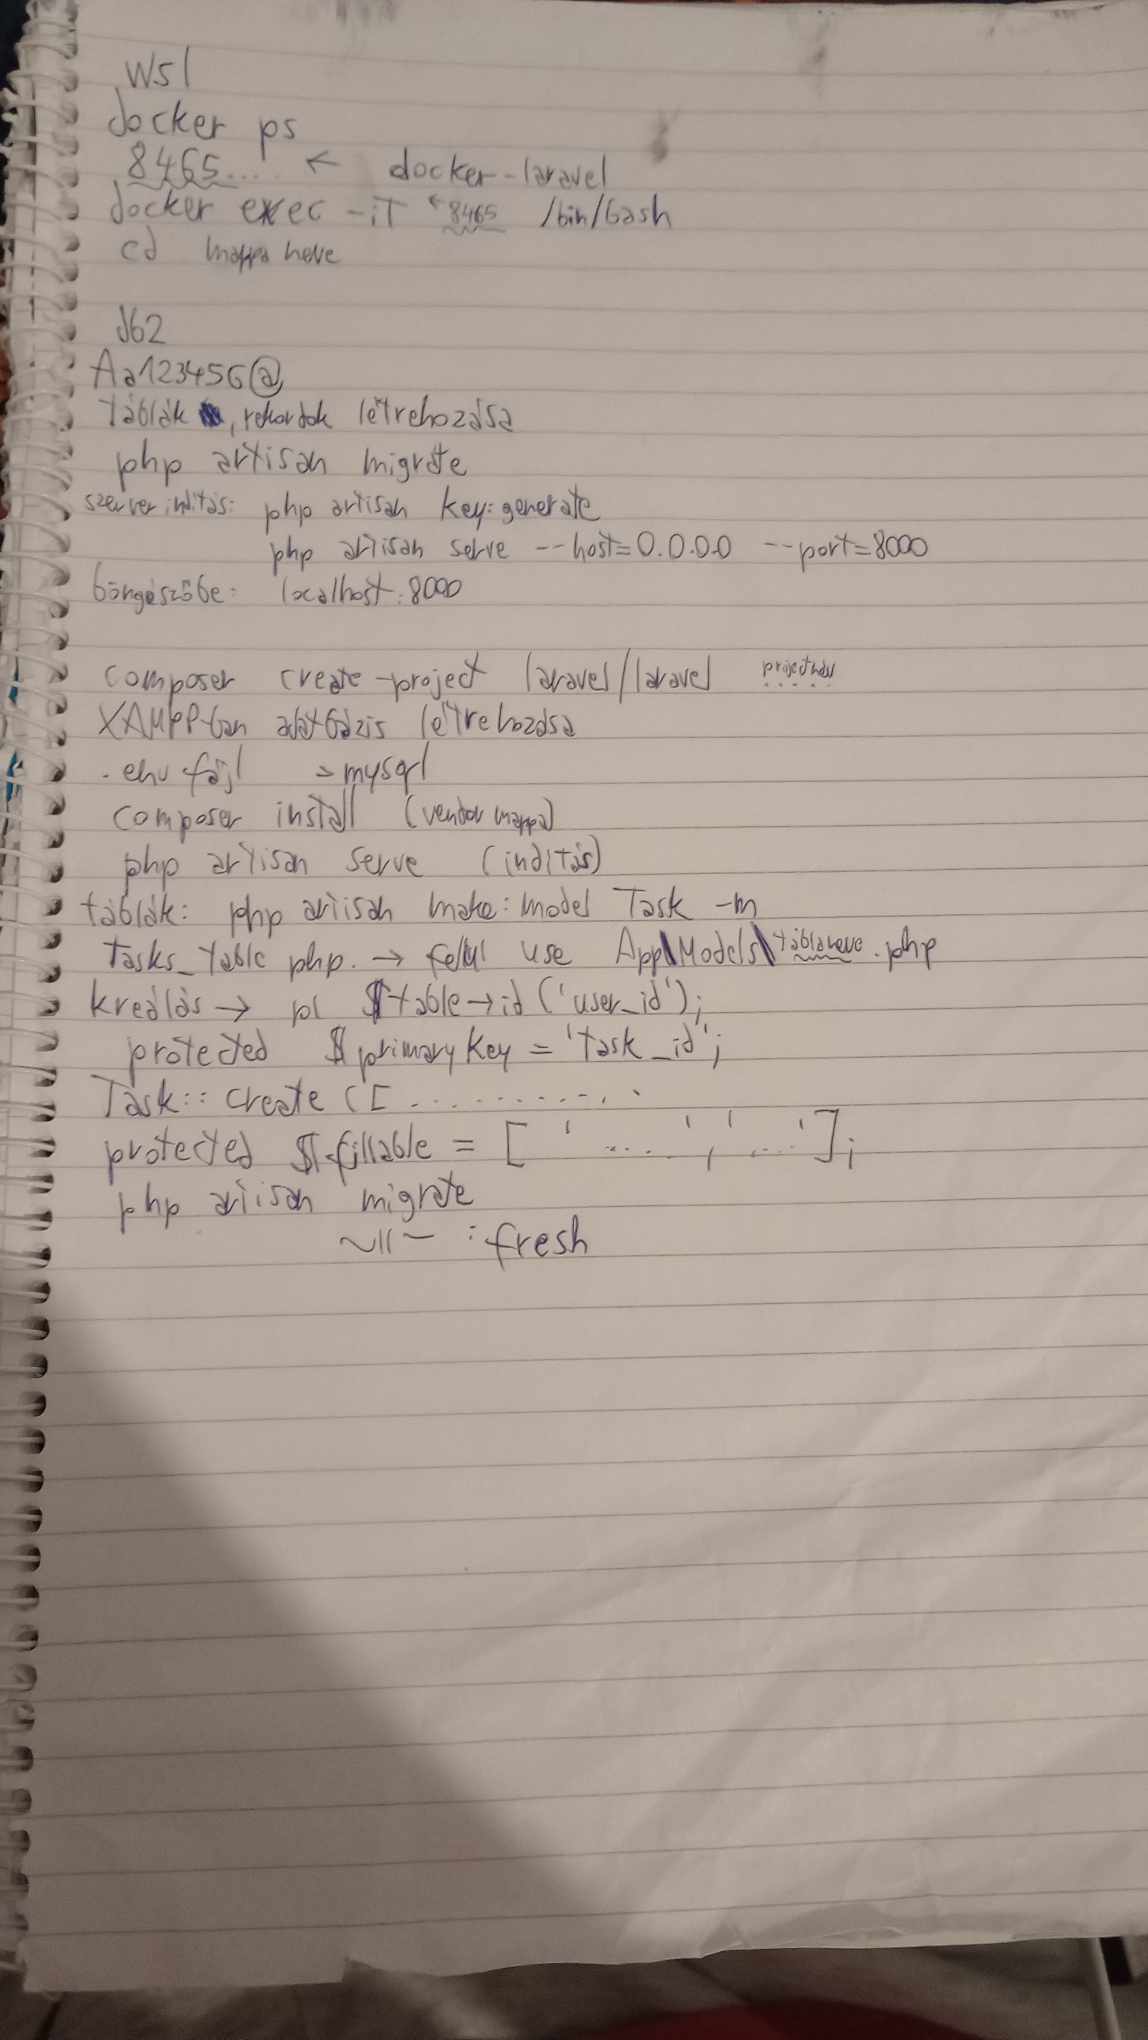 wsl
docker ps
8465.... ← docker-laravel
docker exec -iT ←8465 /bin/bash
cd mappa neve
Aa123456@
táblák, rekordok létrehozása
php artisan migrate
szerver indítás: php artisan key:generate
php artisan serve --host=0.0.0.0 --port=8000
böngészőbe: localhost:8000
composer create-project laravel/laravel projectnév
XAMPP-ban adatbázis létrehozása
.env fájl =mysql
composer install (vendor mappa)
php artisan serve (indítás)
táblák: php artisan make:model Task -m
Tasks_table php. → felül use App\Models\táblaneve.php
kreálás → pl $table→id('user_id');
protected $primaryKey = 'task_id';
Task::create([ ...........
protected $fillable = [ '.....', '....'];
php artisan migrate
~||~ :fresh